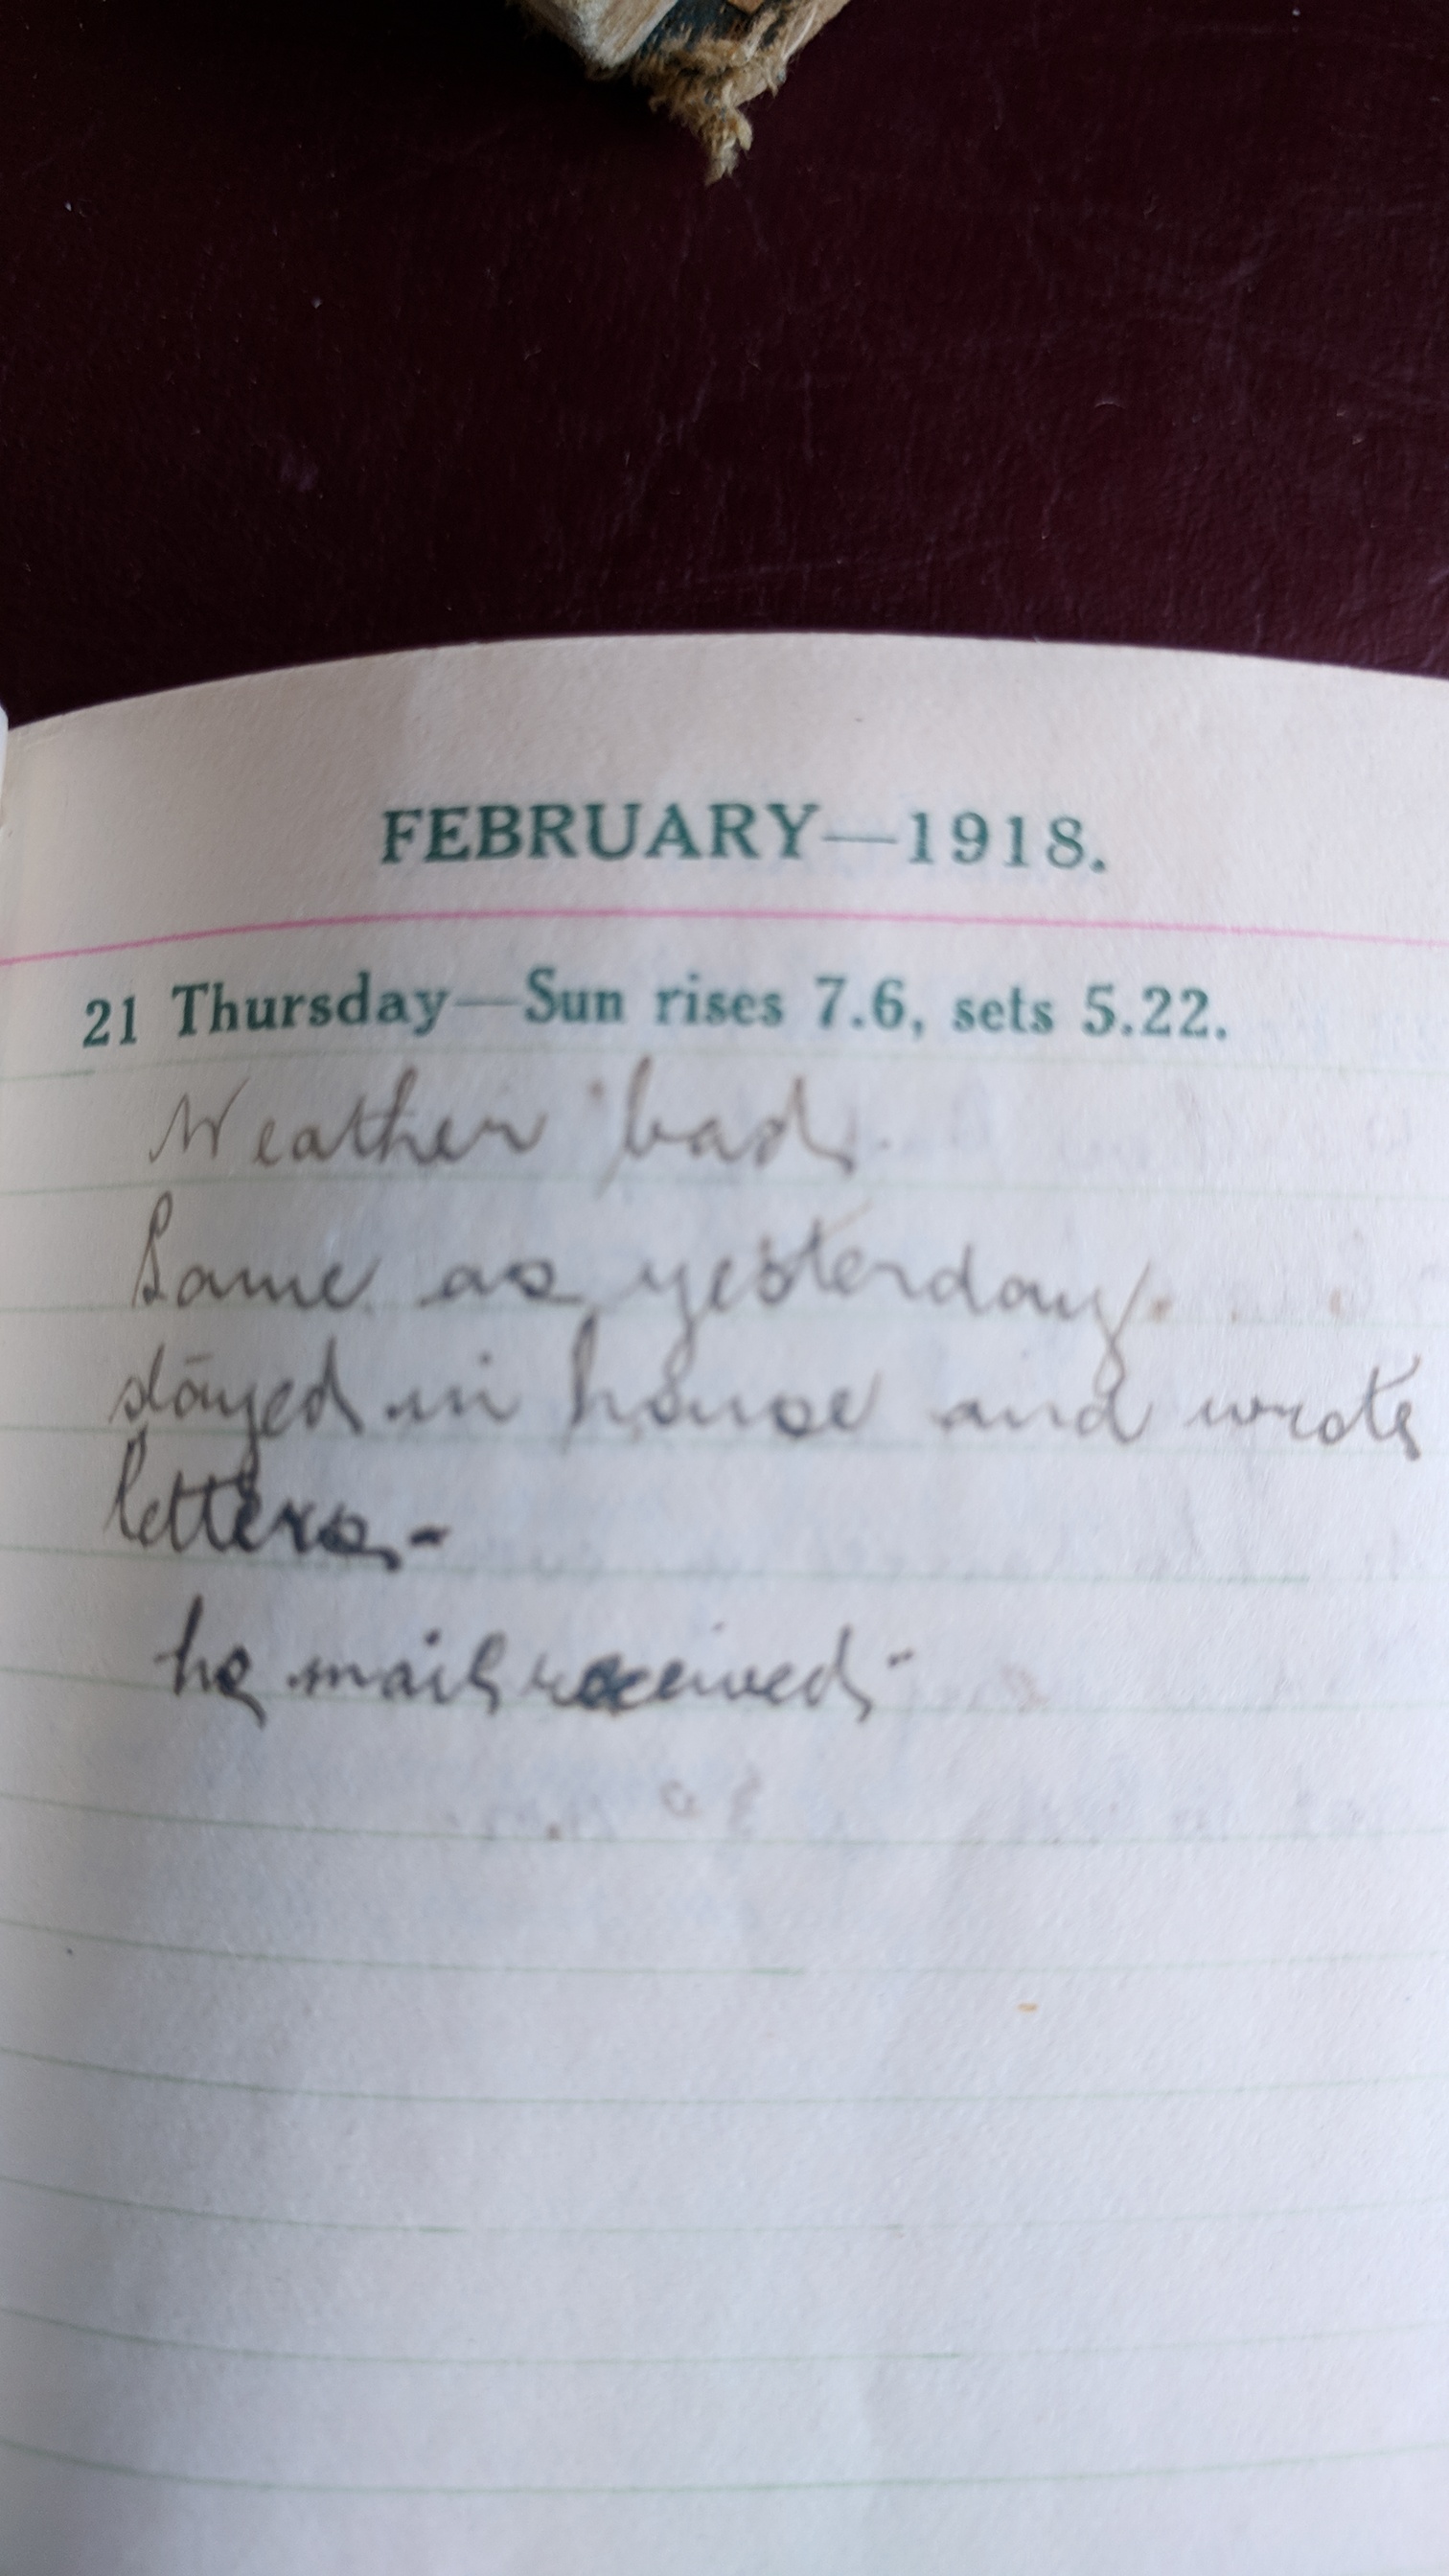 FEBRUARY—1918.
21 Thursday—Sun rises 7.6, sets 5.22.
Weather bad.
Same as yesterday.
stayed in house and wrote
letters.-
No mail received-